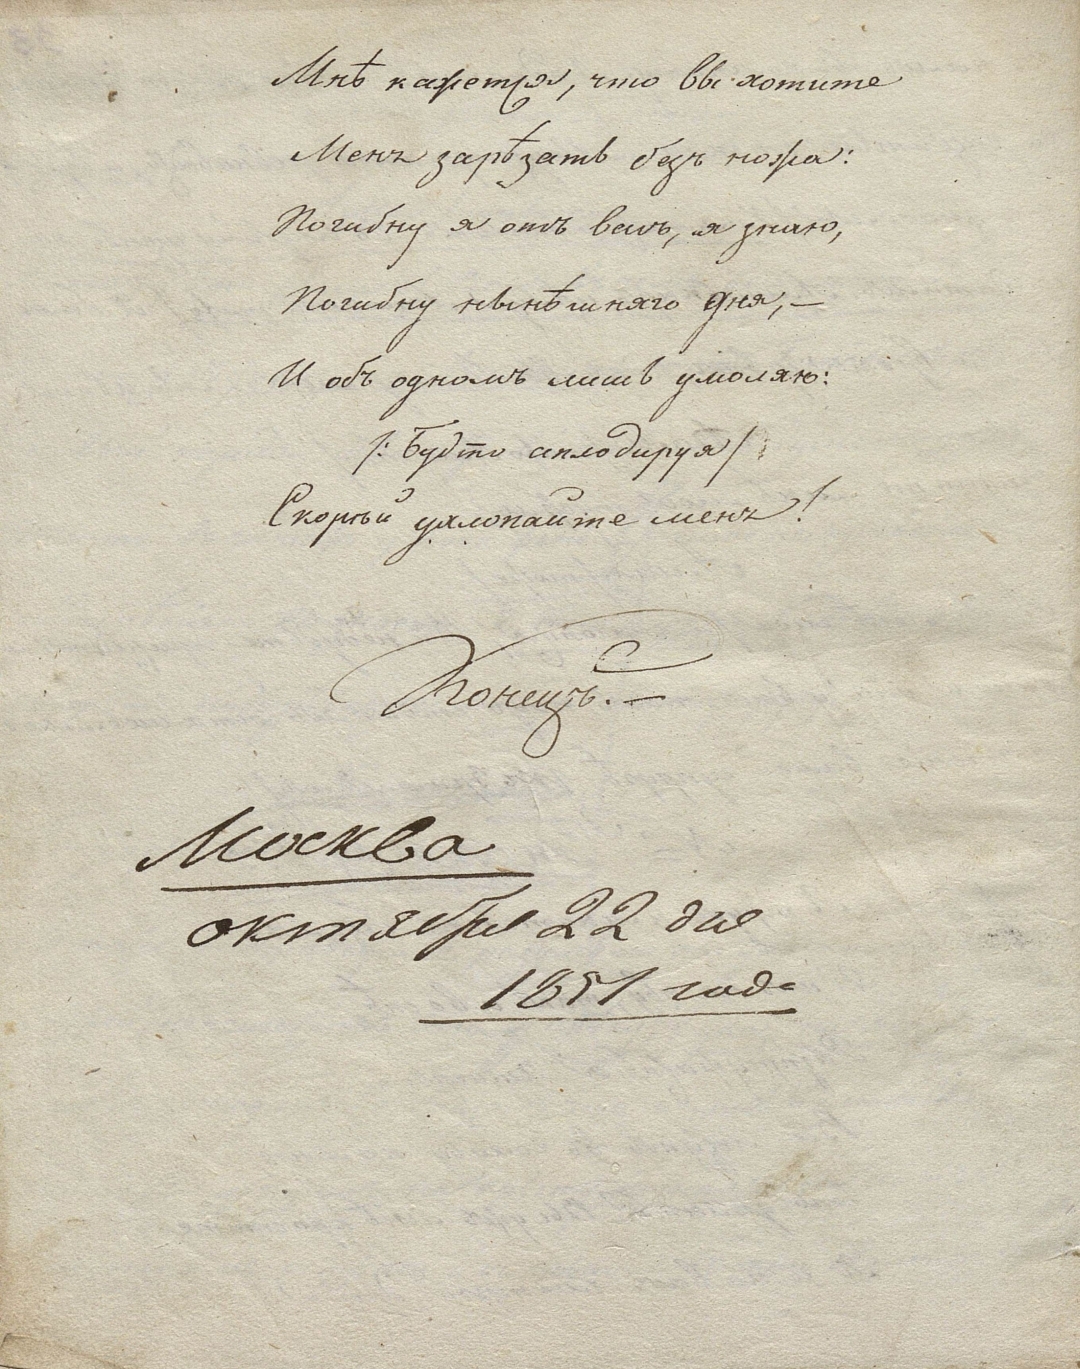 Мнѣ кажется, что вы хотите
Меня зарѣзать безъ ножа:
Погибну я отъ васъ, я знаю,
Погибну нынѣшняго дня, —
И объ одномъ лишь умоляю:
/: Будто аплодируя /
Скорѣй ухлопайте меня!
Конецъ. —
Москва
октября 22 дня
1851 года